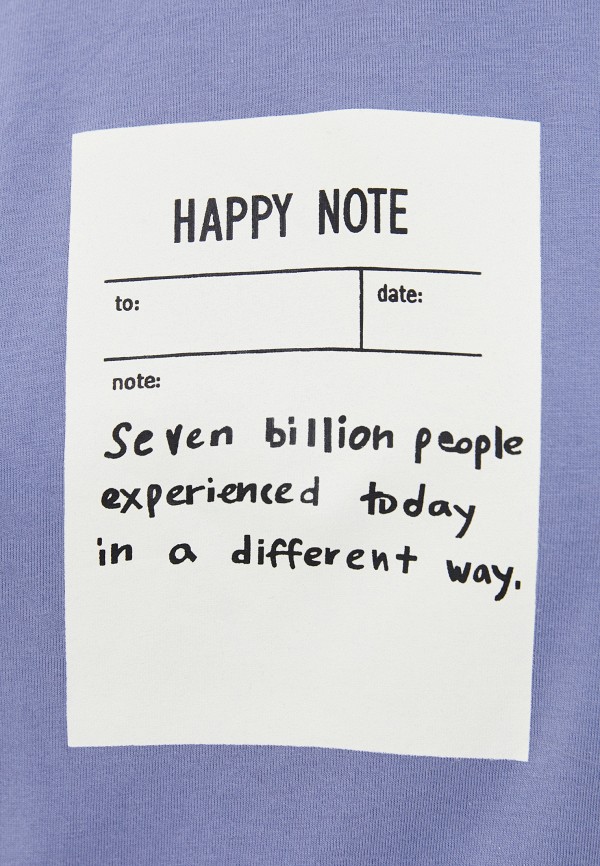 HAPPY NOTE
to: date:
note:
Seven billion people
experienced today
in a different way.